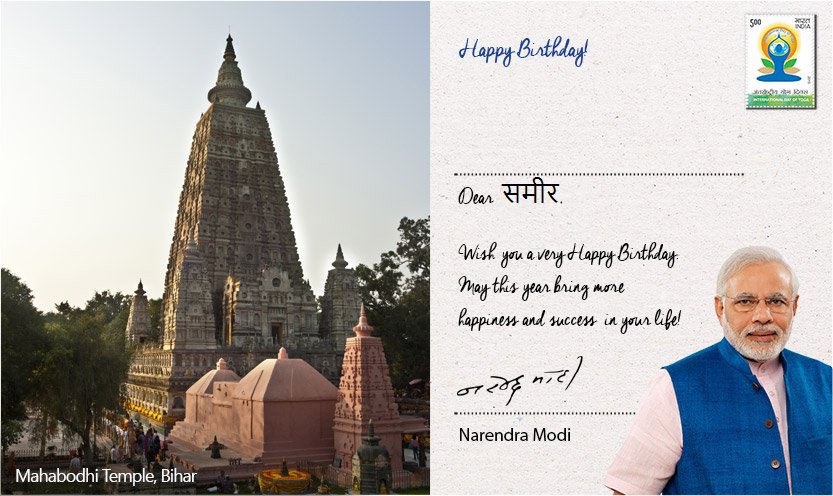 Happy Birthday!
5.00 भारत
INDIA
अंतर्राष्ट्रीय योग दिवस
INTERNATIONAL DAY OF YOGA
Dear समीर,
Wish you a very Happy Birthday.
May this year bring more
happiness and success in your life!
नरेन्द्र मोदी
Narendra Modi
Mahabodhi Temple, Bihar